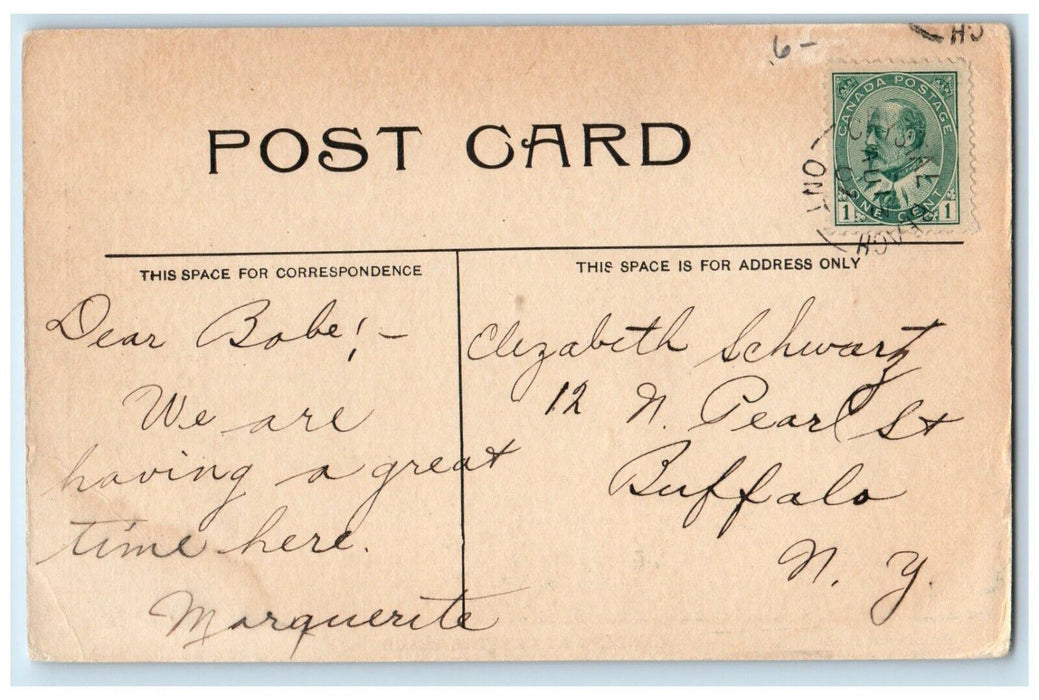 6-
CH
POST CARD
CANADA POSTAGE
1 ONE CENT 1
ONT
THIS SPACE FOR CORRESPONDENCE
THIS SPACE IS FOR ADDRESS ONLY
Dear Babe! -
We are
having a great
time here.
Marguerite
Elizabeth Schwartz
12 N. Pearl St
Buffalo
N. Y.